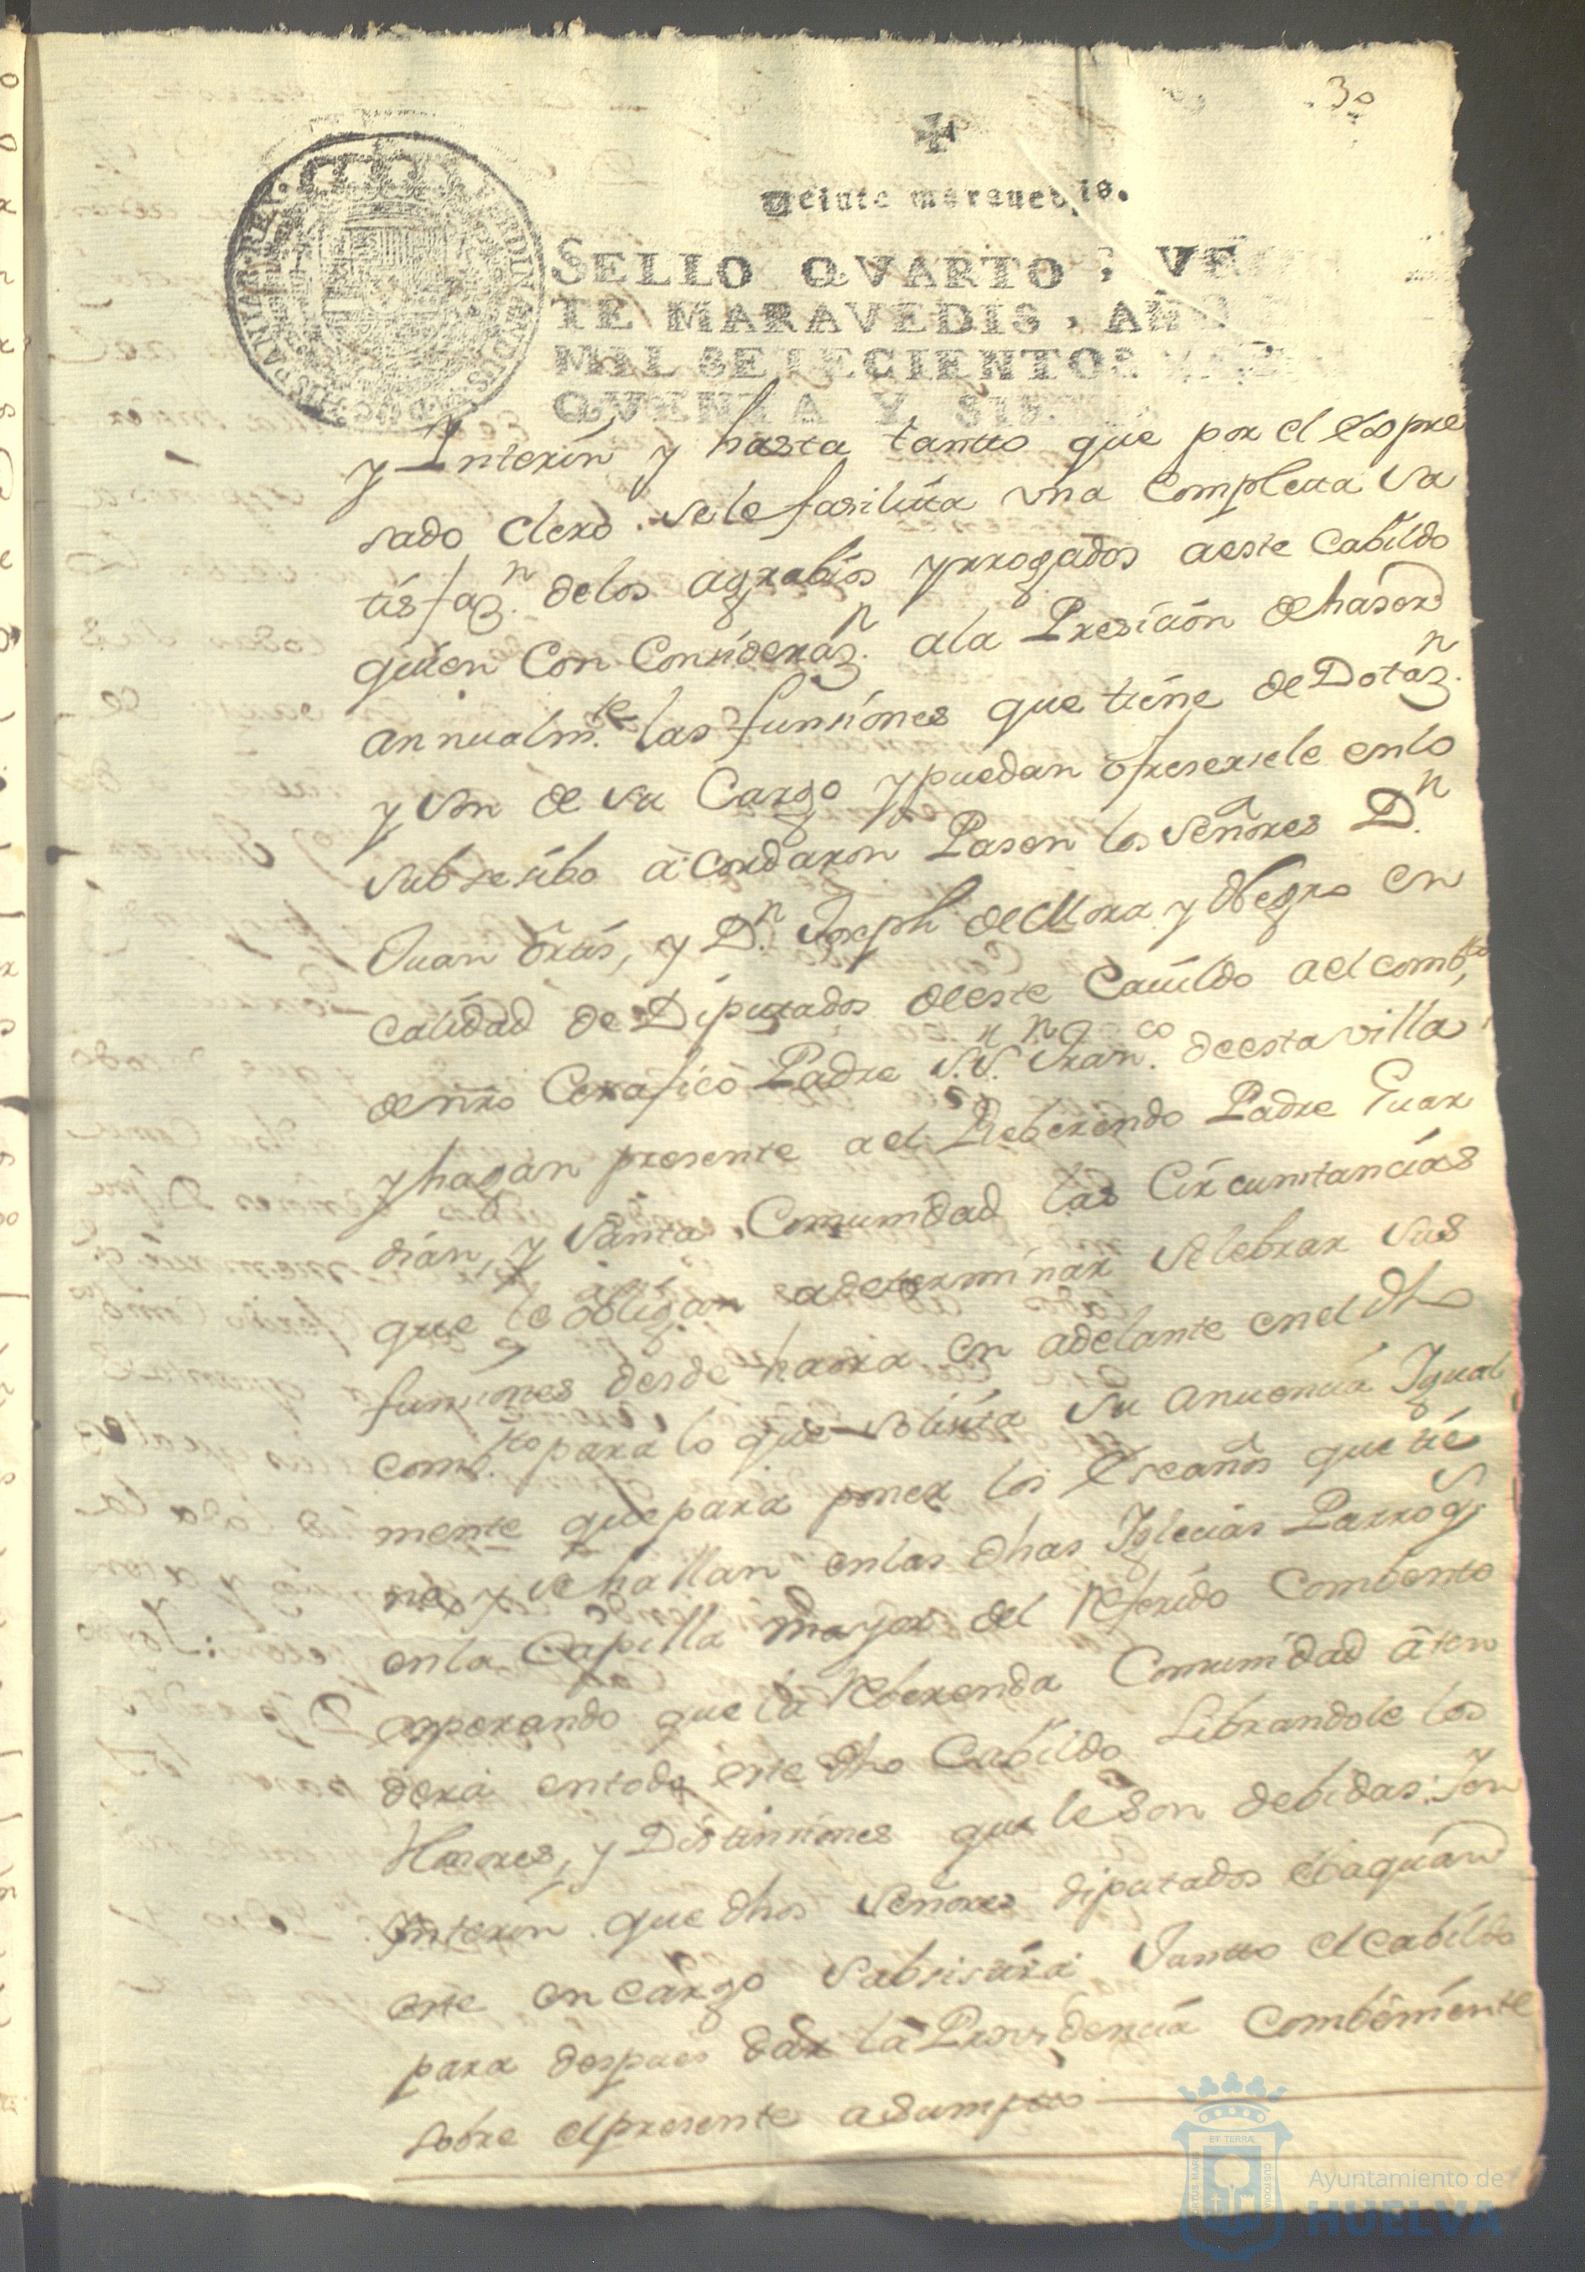 30
Veinte maravedis.
SELLO QVARTO, VE
TE MARAVEDIS, AÑO
MIL SETECIENTOS
QVENTA Y SIE
y Interin y hasta tantto que por el espre
sado Clero se le fasilitta una Completta Sa
tisfaz.n de los agrabios yrrogados a este Cabildo
quien Con Consideraz.n a la Presición de haser
annualm.te las funsiones que tiene de Dotaz.n
y son de su Cargo y puedan ofreserse le en lo
subsesibo acordaron Pasen los señores D.n
Juan Ortis, y D.n Joseph de Mora y Negro en
Calidad de Diputtados de este Cauildo a el comb.to
de nro Cerafico Padre S.n Fran.co de esta villa
y hagan presente a el Reberendo Padre Guar
dian, y Santa Comunidad las Circunstancias
que le obligan a determinar Selebrar sus
funsiones desde haora en adelante en el dho
comb.to para lo que solisita su anuencia Igual
mente que para poner los Escaños que tie
ne y se hallan en las dhas Iglecias Parroq.s
en la Capilla mayor del referido Combento
esperando que la reberenda Comunidad aten
derá en todo este dho Cabildo Librandole los
Honores, y Distinsiones que le son debidas: Yen
Ynterin que dhos Señores diputados Ebaquan
este encargo Subsistirá Juntto el cabildo
para despues dar la Providencia Combeniente
sobre el presente asumptto
ET TERRA
CUSTODIA
Ayuntamiento de
HUELVA